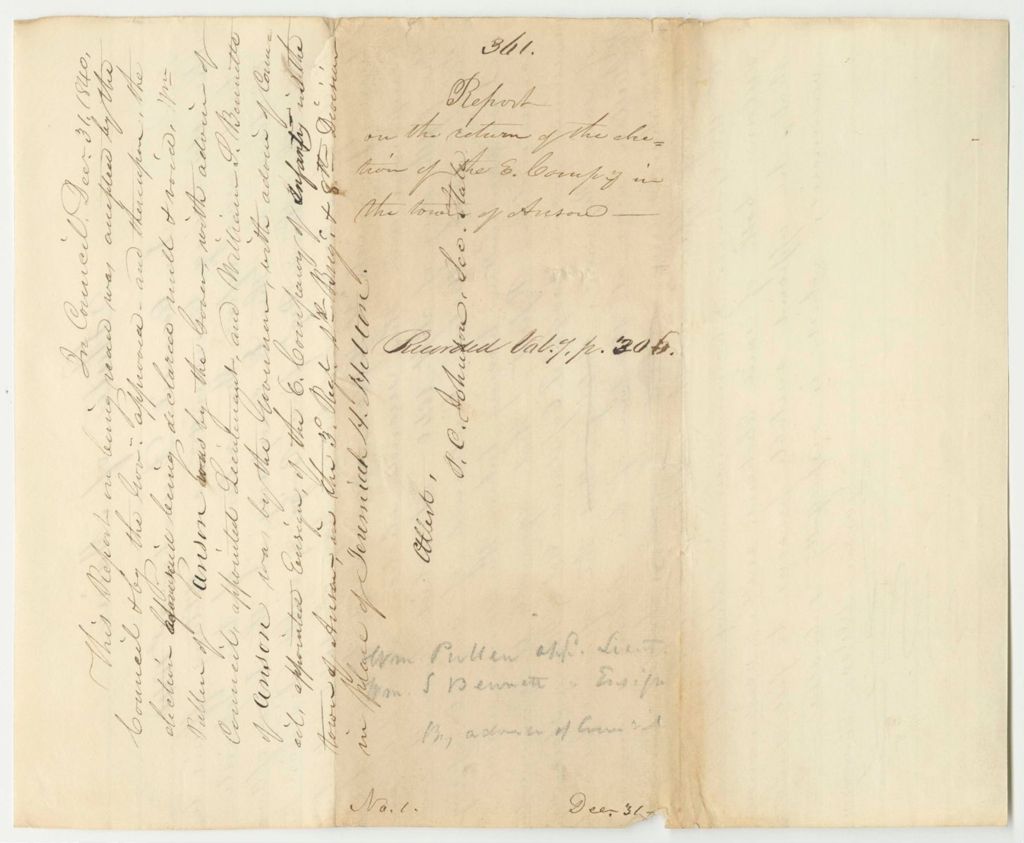 361.
Report
on the return of the elec=
tion of the E. Comp'y in
the town of Anson —
Recorded Vol. 7, p. 306.
Wm Pullen app. Lieut
Wm. S Bennett " Ensign
By advice of Council
No. 1.
Dec. 31
In Council, Dec. 31, 1840.
This Report on being read was accepted by the
Council & by the Gov. approved - and thereupon, the
election aforesaid being declared null & void, Wm
Pullen of Anson was by the Governor, with advice of
Council, appointed Lieutenant, and William S. Bennett
of Anson was by the Governor, with advice of Coun-
cil, appointed Ensign, of the E. Company of Infantry in the
town of Anson, in the 3. Regt 1st Brig. & 8th Division
in place of Jeremiah H. Hilton.
Attest,
P. C. Johnson, Sec. State